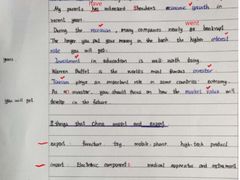 Have
My parents has witnessed Shenzhen's economic growth in
recent years.
went
During the recession, many companies nearly go bankrupt.
The longer you put your money in the bank the higher interest
rate you will get.
years
Investment in education is well worth doing.
Warren Buffet is the world's most famous investor
Tourism plays an important role in some countries' economy.
As an investor, you should focus on how the market value will
you will get
develop in the future
8 things that China import and export
export: furniture toy mobile phone high-tech product
import: Electronic component medical apparatus and instrument